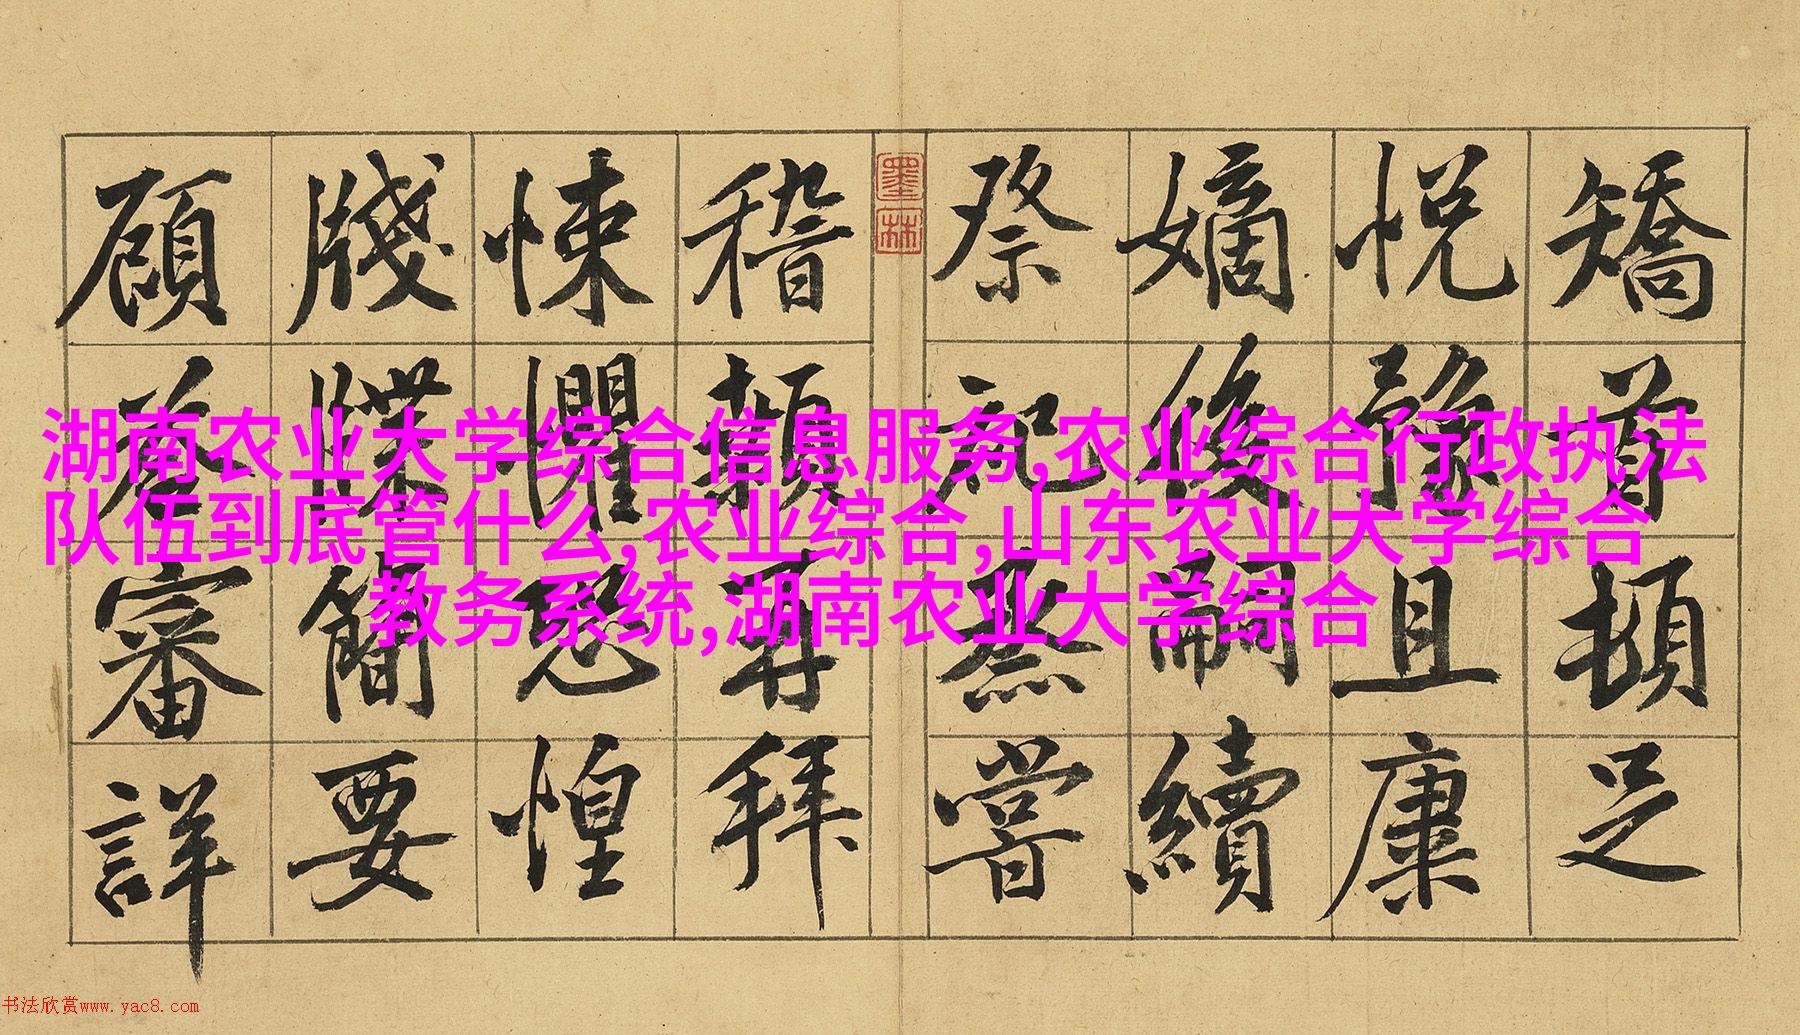 矯首頓足
悅豫且康
嫡後嗣續
祭祀蒸嘗
墨林
稽顙再拜
悚懼恐惶
牋牒簡要
顧荅審詳
湖南农业大学综合信息服务,农业综合行政执法
队伍到底管什么,农业综合,山东农业大学综合
教务系统,湖南农业大学综合
书法欣赏www.yac8.com